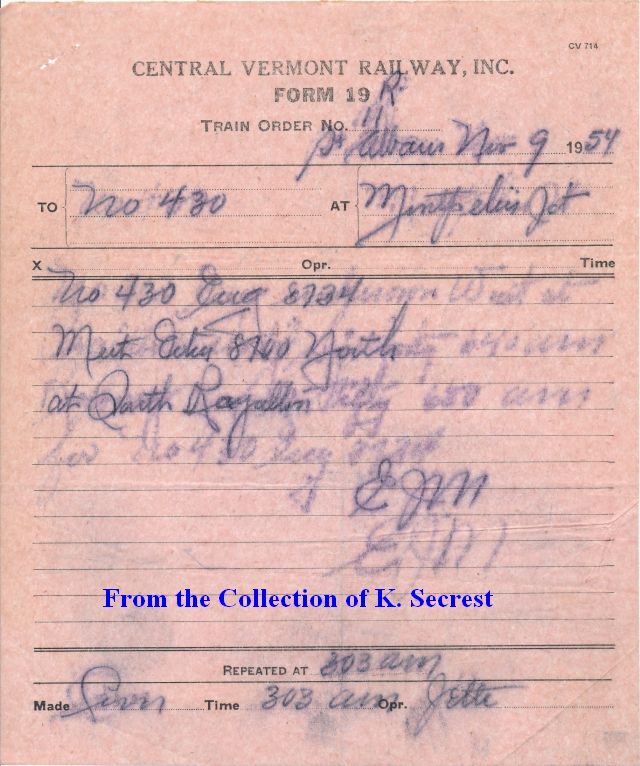 CV 714
CENTRAL VERMONT RAILWAY, INC.
FORM 19 R
TRAIN ORDER NO. 11
St Albans Nov 9 1954
TO No 430 AT Montpelier Jct
X Opr. Time
No 430 Eng 8734
Meet Extra 8760 North
at South Royalton
650 am
for No 430 Eng
EJM
EJM
From the Collection of K. Secrest
REPEATED AT 303 am
Made Time 303 am Opr. Jette